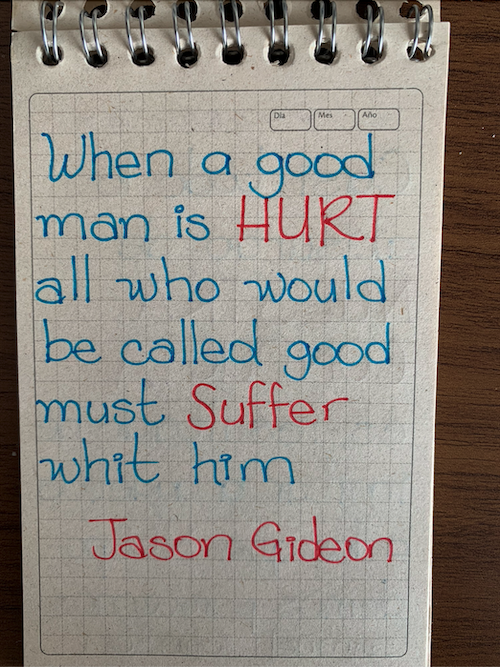 Día Mes Año
When a good
man is HURT
all who would
be called good
must Suffer
whit him
Jason Gideon